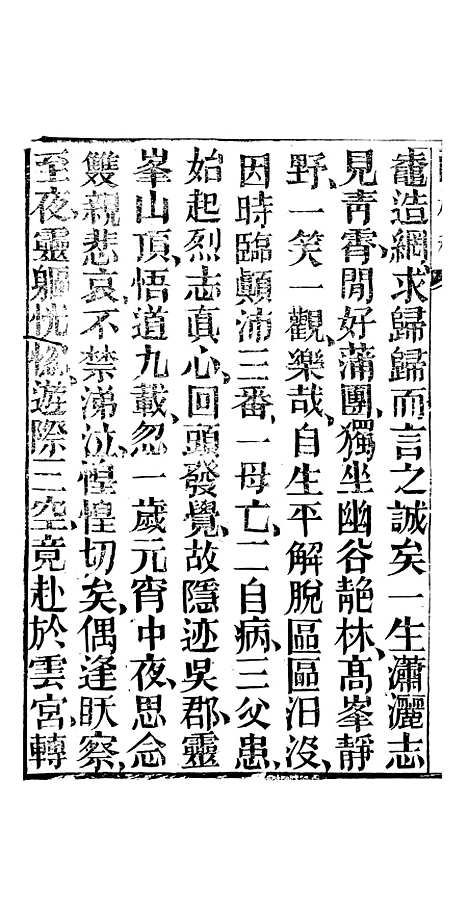 竈造網、求歸歸而言之誠矣一生瀟灑志
見靑霄、閒好蒲團、獨坐幽谷靘林、高峯靜
野、一笑一觀、樂哉、自生平解脫區區汨沒、
因時臨顚沛三番、一母亡、二自病、三父患、
始起烈志真心、回頭發覺、故隱迹吳郡、靈
峯山頂、悟道九載、忽一歲元宵中夜、思念
雙親悲哀、不禁涕泣、惶惶切矣、偶逢昳察、
至夜、靈軀恍惚、遊際三空、竟赴於雲宮、轉